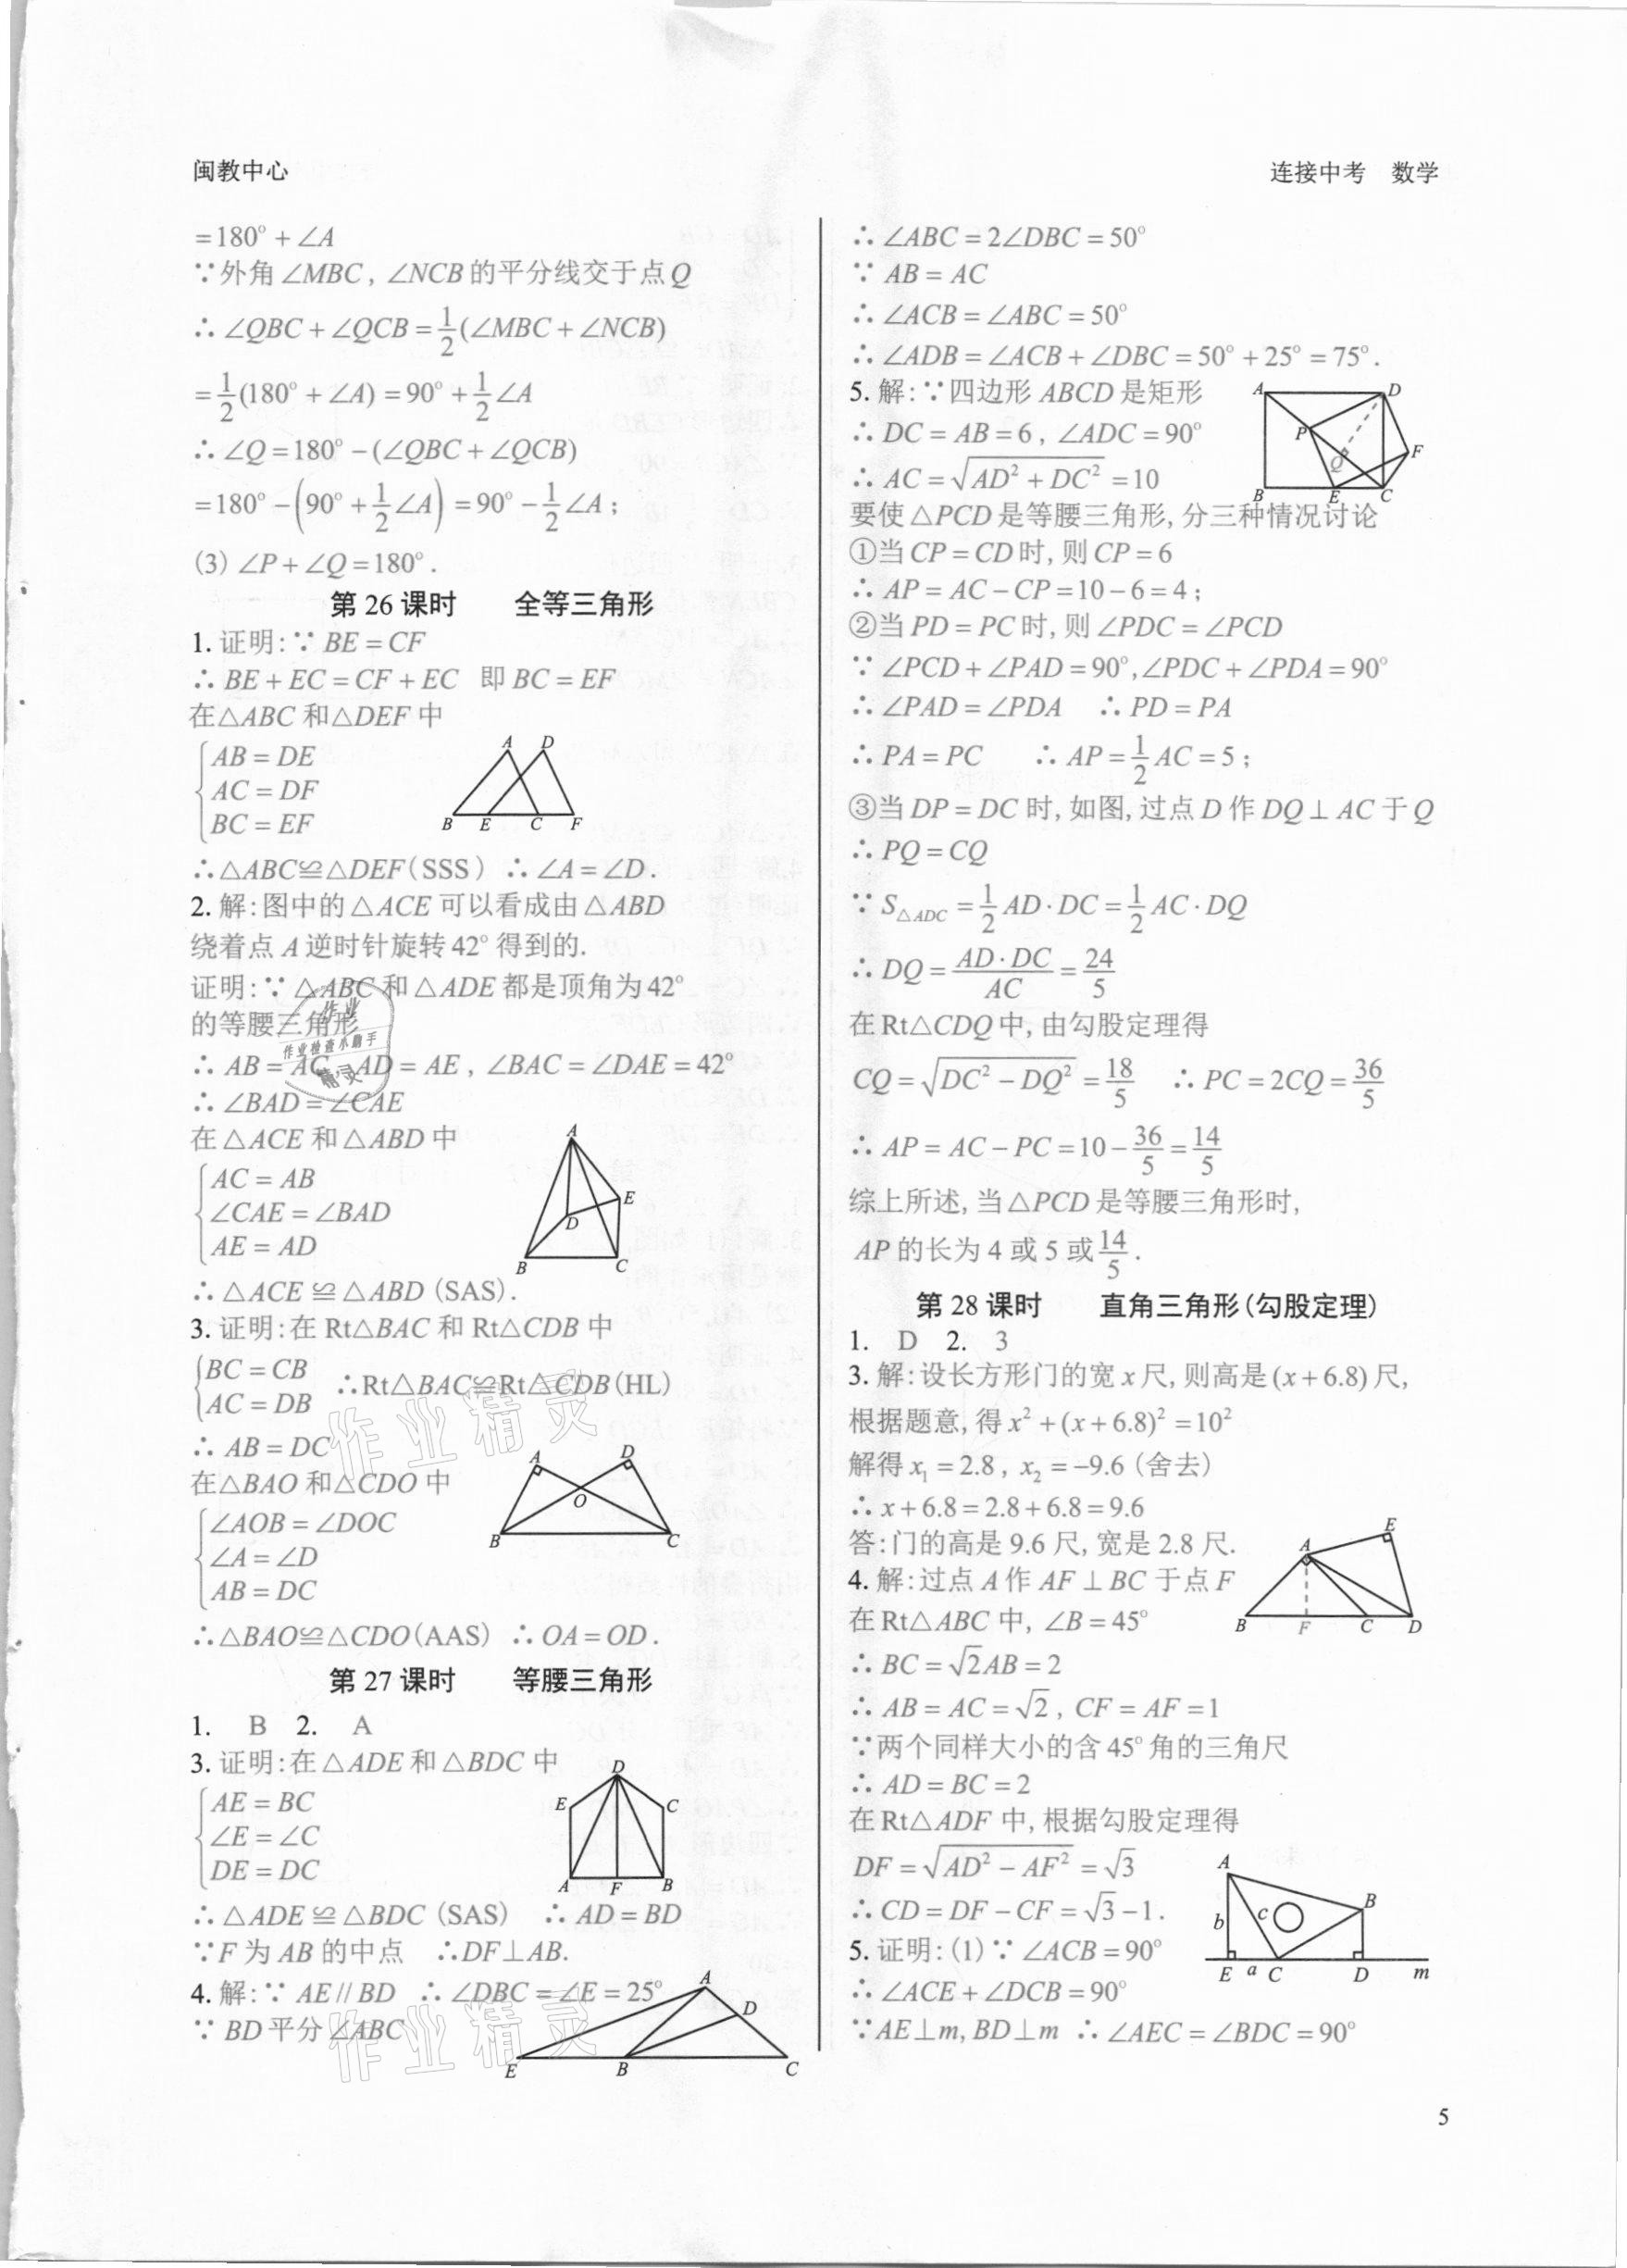 闽教中心
连接中考 数学
=180°+∠A
∵外角∠MBC, ∠NCB的平分线交于点Q
∴ ∠QBC+∠QCB=1/2(∠MBC+∠NCB)
=1/2(180°+∠A)=90°+1/2∠A
∴ ∠Q=180°-(∠QBC+∠QCB)
=180°-(90°+1/2∠A)=90°-1/2∠A;
(3) ∠P+∠Q=180°.
第26课时 全等三角形
1. 证明:∵ BE=CF
∴ BE+EC=CF+EC 即BC=EF
在△ABC和△DEF中
AB=DE
AC=DF
BC=EF
A D
B E C F
∴△ABC≌△DEF(SSS) ∴ ∠A=∠D.
2. 解:图中的△ACE可以看成由△ABD
绕着点A逆时针旋转42°得到的.
证明:∵ △ABC和△ADE都是顶角为42°
的等腰三角形
∴ AB=AC, AD=AE, ∠BAC=∠DAE=42°
∴ ∠BAD=∠CAE
在△ACE和△ABD中
AC=AB
∠CAE=∠BAD
AE=AD
A
E
D
B C
∴ △ACE≌△ABD (SAS).
3. 证明:在Rt△BAC和Rt△CDB中
BC=CB
AC=DB
∴Rt△BAC≌Rt△CDB(HL)
∴ AB=DC
在△BAO和△CDO中
∠AOB=∠DOC
∠A=∠D
AB=DC
A D
O
B C
∴△BAO≌△CDO(AAS) ∴ OA=OD.
第27课时 等腰三角形
1. B 2. A
3. 证明:在△ADE和△BDC中
AE=BC
∠E=∠C
DE=DC
D
E C
A F B
∴ △ADE≌△BDC (SAS) ∴ AD=BD
∵F为AB的中点 ∴DF⊥AB.
4. 解:∵ AE//BD ∴ ∠DBC=∠E=25°
∵ BD平分∠ABC
A
D
E B C
∴ ∠ABC=2∠DBC=50°
∵ AB=AC
∴ ∠ACB=∠ABC=50°
∴ ∠ADB=∠ACB+∠DBC=50°+25°=75°.
5. 解:∵四边形ABCD是矩形
∴ DC=AB=6, ∠ADC=90°
∴ AC=√(AD²+DC²)=10
A D
P
Q F
B E C
要使△PCD是等腰三角形,分三种情况讨论
①当CP=CD时,则CP=6
∴ AP=AC-CP=10-6=4;
②当PD=PC时,则∠PDC=∠PCD
∵ ∠PCD+∠PAD=90°,∠PDC+∠PDA=90°
∴ ∠PAD=∠PDA ∴ PD=PA
∴ PA=PC ∴ AP=1/2AC=5;
③当DP=DC时,如图,过点D作DQ⊥AC于Q
∴ PQ=CQ
∵ S△ADC=1/2AD·DC=1/2AC·DQ
∴ DQ=AD·DC/AC=24/5
在Rt△CDQ中,由勾股定理得
CQ=√(DC²-DQ²)=18/5 ∴ PC=2CQ=36/5
∴ AP=AC-PC=10-36/5=14/5
综上所述,当△PCD是等腰三角形时,
AP的长为4或5或14/5.
第28课时 直角三角形(勾股定理)
1. D 2. 3
3. 解:设长方形门的宽x尺,则高是(x+6.8)尺,
根据题意,得x²+(x+6.8)²=10²
解得x₁=2.8, x₂=-9.6(舍去)
∴ x+6.8=2.8+6.8=9.6
答:门的高是9.6尺,宽是2.8尺.
4. 解:过点A作AF⊥BC于点F
在Rt△ABC中, ∠B=45°
E
A
B F C D
∴ BC=√2AB=2
∴ AB=AC=√2, CF=AF=1
∵两个同样大小的含45°角的三角尺
∴ AD=BC=2
在Rt△ADF中,根据勾股定理得
DF=√(AD²-AF²)=√3
∴ CD=DF-CF=√3-1.
A
b c B
E a C D m
5. 证明:(1)∵ ∠ACB=90°
∴ ∠ACE+∠DCB=90°
∵AE⊥m, BD⊥m ∴ ∠AEC=∠BDC=90°
5
作业
作业检查小助手
精灵
作业精灵
作业精灵